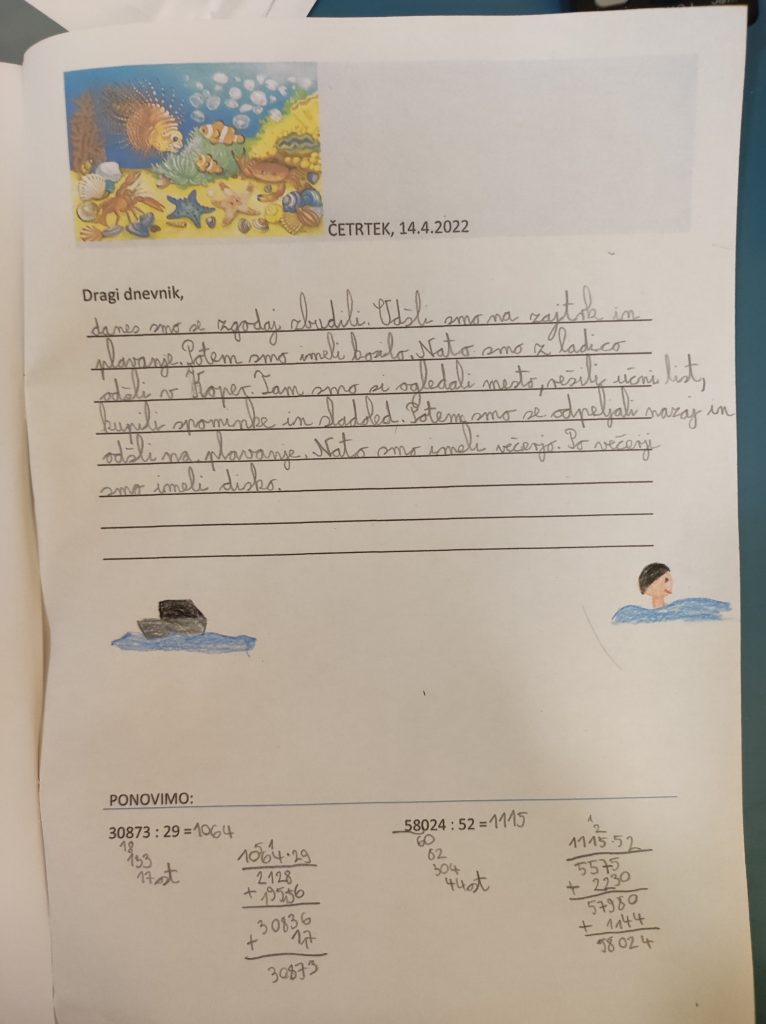 ČETRTEK, 14.4.2022
Dragi dnevnik,
danes smo se zgodaj zbudili. Odšli smo na zajtok in
plavanje. Potem smo imeli kosilo. Nato smo z ladico
odšli v Koper. Tam smo si ogledali mesto, rešili učni list,
kupili spominke in sladoled. Potem smo se odpeljali nazaj in
odšli na plavanje. Nato smo imeli večerjo. Po večerji
smo imeli disko.
PONOVIMO:
30873 : 29 = 1064
18
133
17 ost
51
1064 · 29
2128
+ 9576
30856
+ 17
30873
58024 : 52 = 1115
60
82
304
44 ost
1
2
1115 · 52
5575
+ 2230
57980
+ 44
58024